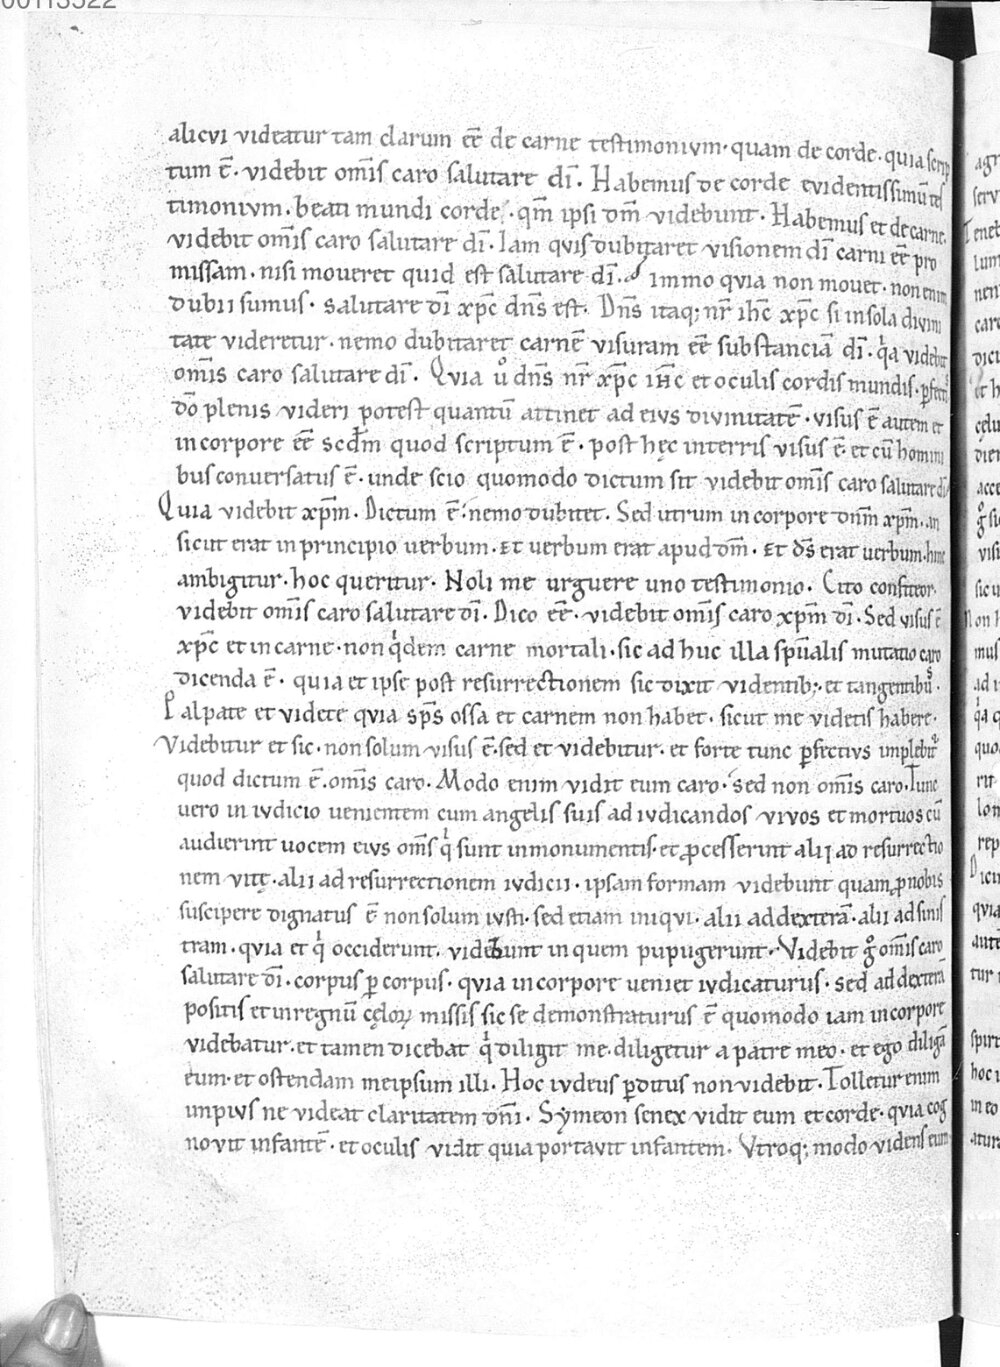 00113522
alicui videatur tam clarum eē de carne testimonium· quam de corde· quia scrip
tum ē· videbit om̄is caro salutare dī. Habemus de corde evidentissimū tes
timonium· beati mundi corde· qm̄ ipsi dm̄ videbunt· Habemus et de carne·
videbit om̄is caro salutare dī. Iam quis dubitaret visionem dī carni eē pro
missam· nisi moveret quid est salutare dī· immo quia non movet· non enim
dubii sumus· salutare dī xp̄c dn̄s est. Dn̄s itaq; nr̄ ih̄c xp̄c si in sola divini
tate videretur· nemo dubitaret carnē visuram eē substanciā dī· qa videbit
om̄is caro salutare dī. Quia uͦ dn̄s nr̄ xp̄c ih̄c et oculis cordis mundis· ꝑfectis
dō plenis videri potest quantū attinet ad eius divinitatē· visus ē autem et
in corpore eē scd̄m quod scriptum ē· post hęc in terris visus ē· et cū homini
bus conversatus ē· unde scio quomodo dictum sit videbit om̄is caro salutare dī
Quia videbit xp̄m. Dictum ē· nemo dubitet. Sed utrum in corpore dn̄m xp̄m· an
sicut erat in principio uerbum· Et uerbum erat apud dm̄· Et ds̄ erat uerbum· hinc
ambigitur· hoc queritur· Noli me urguere uno testimonio· Cito confiteor·
videbit om̄is caro salutare dī. Dico eē· videbit om̄is caro xp̄m dī· Sed visus ē
xp̄c et in carne· non qͥdem carne mortali· sic ad huc illa sp̄ualis mutatio caro
dicenda ē· quia et ipse post resurrectionem sic dixit videntib;· et tangentibus·
Palpate et videte quia sp̄s ossa et carnem non habet· sicut me videtis habere·
Videbitur et sic· non solum visus ē· sed et videbitur· et forte tunc ꝑfectius implebit᷑
quod dictum ē· om̄is caro· Modo enim vidit eum caro· sed non om̄is caro· Tunc
uero in iudicio uenientem cum angelis suis ad iudicandos vivos et mortuos cū
audierint uocem eius om̄s qͥ sunt in monumentis· et ꝓcesserint alii ad resurrectio
nem vitę· alii ad resurrectionem iudicii· ipsam formam videbunt quam ꝓ nobis
suscipere dignatus ē non solum iusti· sed etiam iniqui· alii ad dexterā· alii ad sinis
tram· quia et qͥ occiderunt· videbunt in quem pupugerunt· Videbit gͦ om̄is caro
salutare dī· corpus ꝑ corpus· quia in corpore ueniet iudicaturus· sed ad dexterā
positis et in regnū cęloꝝ missis sic se demonstraturus ē quomodo iam in corpore
videbatur· et tamen dicebat qͥ diligit me· diligetur a patre meo· et ego diligā
eum· et ostendam meipsum illi. Hoc iudeus ꝑditus non videbit· Tolletur enim
impius ne videat claritatem dn̄i· Symeon senex vidit eum et corde· quia cog
novit infantē· et oculis vidit quia portavit infantem. Utroq; modo videns eum